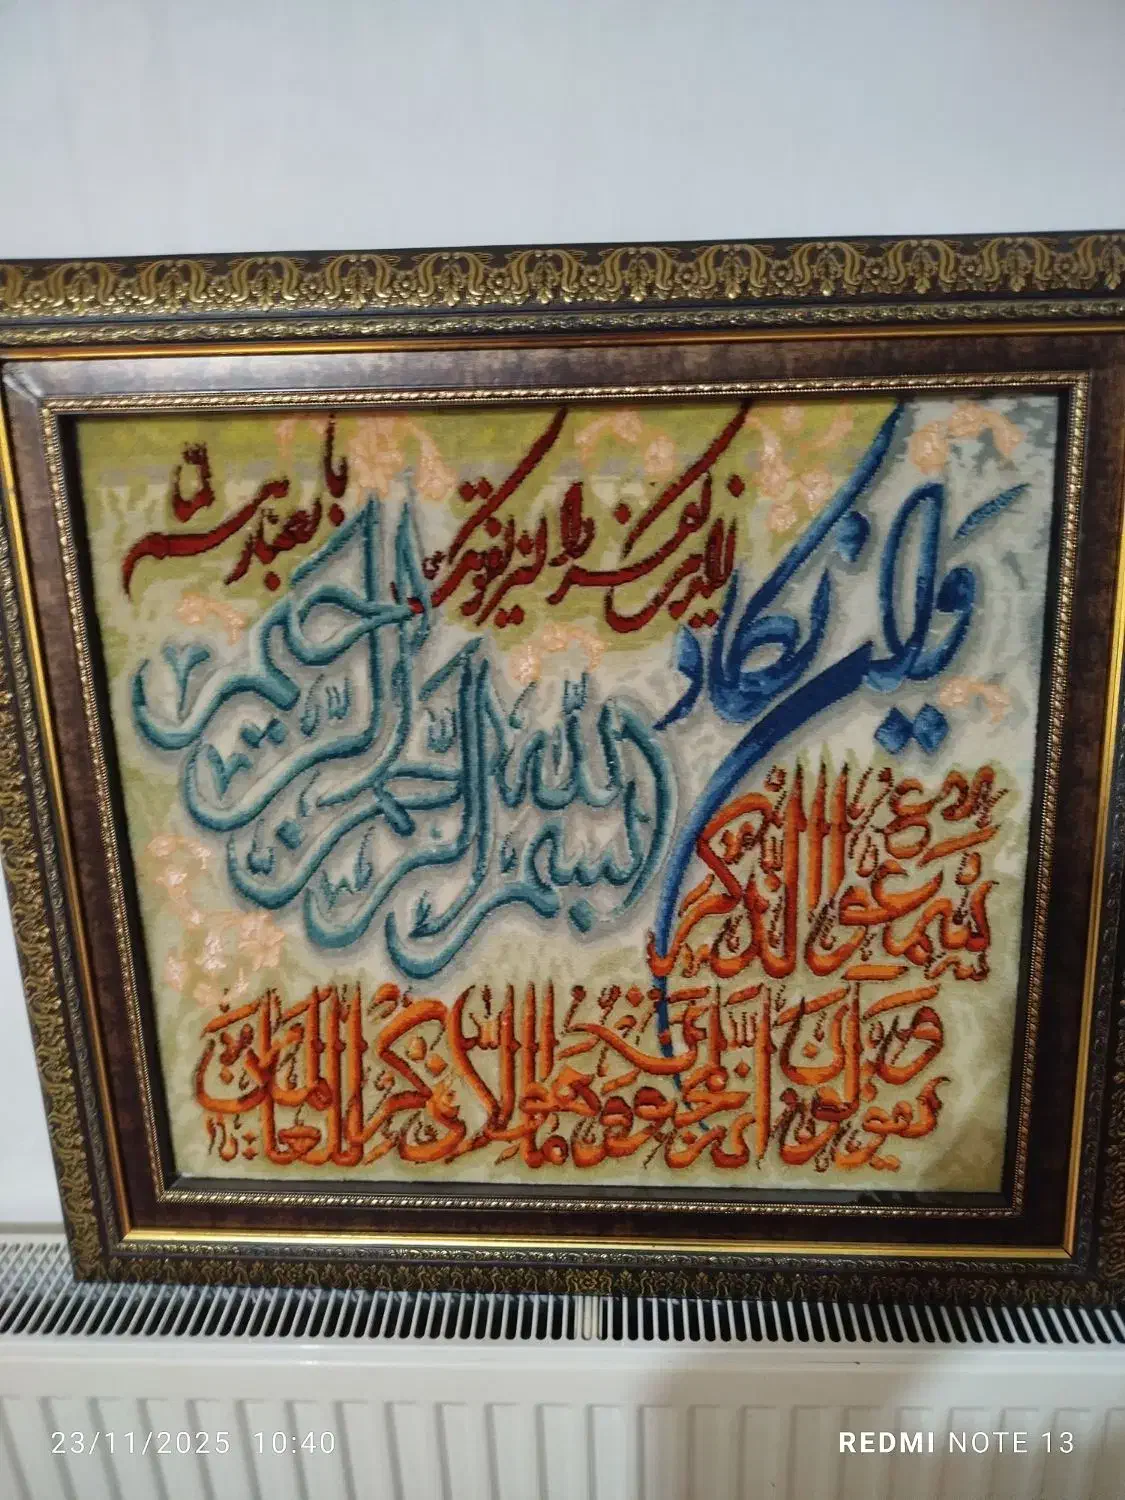 بسم الله الرحمن الرحیم
وان یکاد
الذین کفروا لیزلقونک
بابصارهم لما
سمعوا الذکر
و یقولون انه لمجنون وما هو الا ذکر للعالمین
23/11/2025 10:40
REDMI NOTE 13